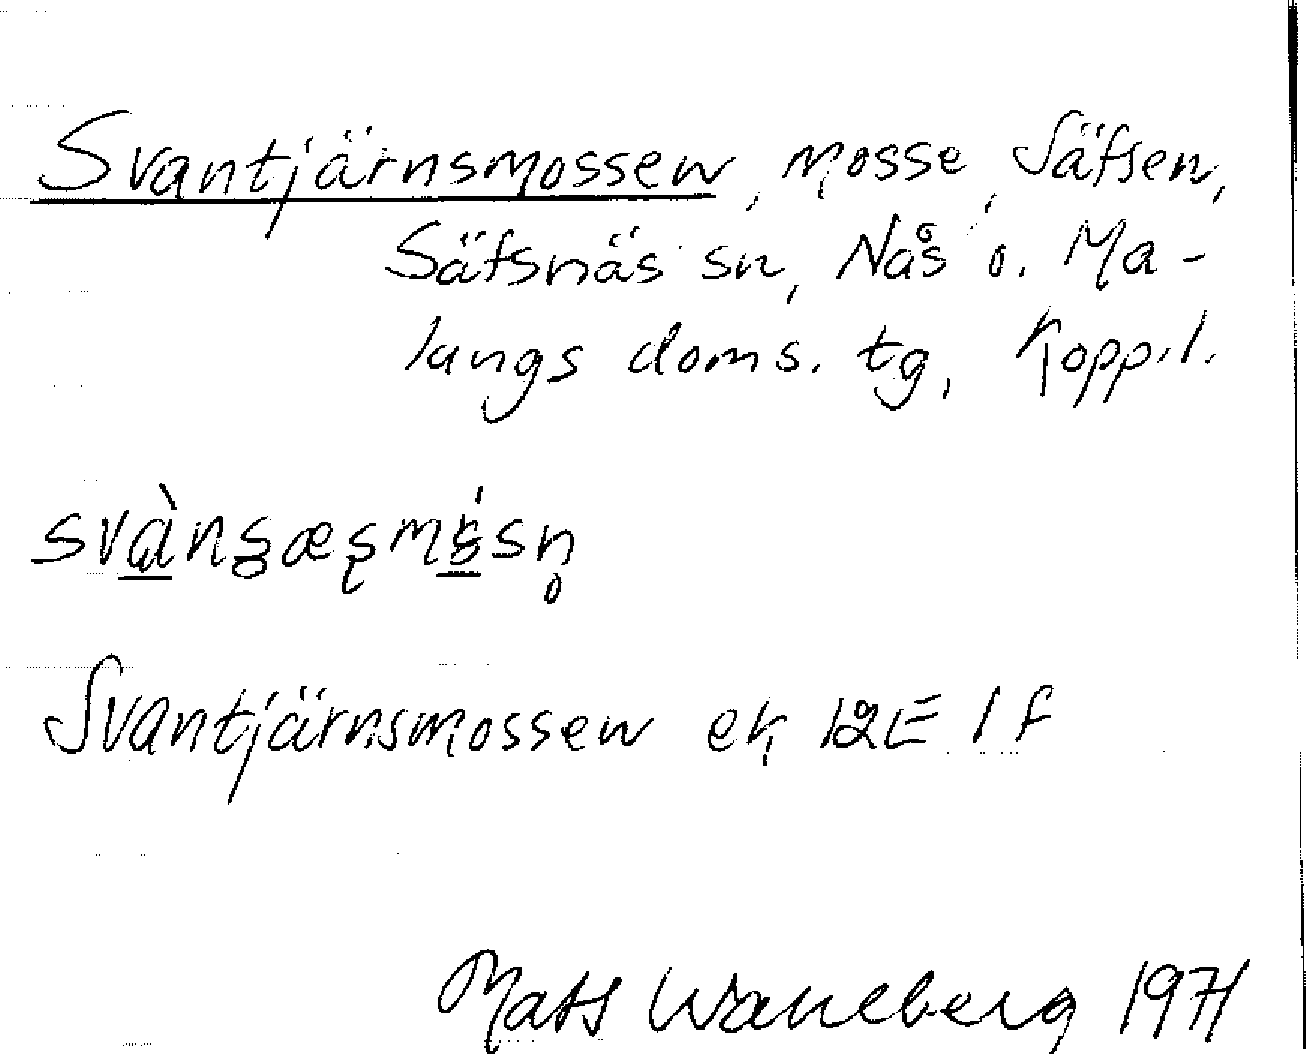 Svantjärnsmossen, mosse, Säfsen,
Säfsnäs sn, Nås o. Ma-
lungs doms. tg, Kopp.l.
Svantjärnsmossen ek 12E 1f
Mats Wahlberg 1971